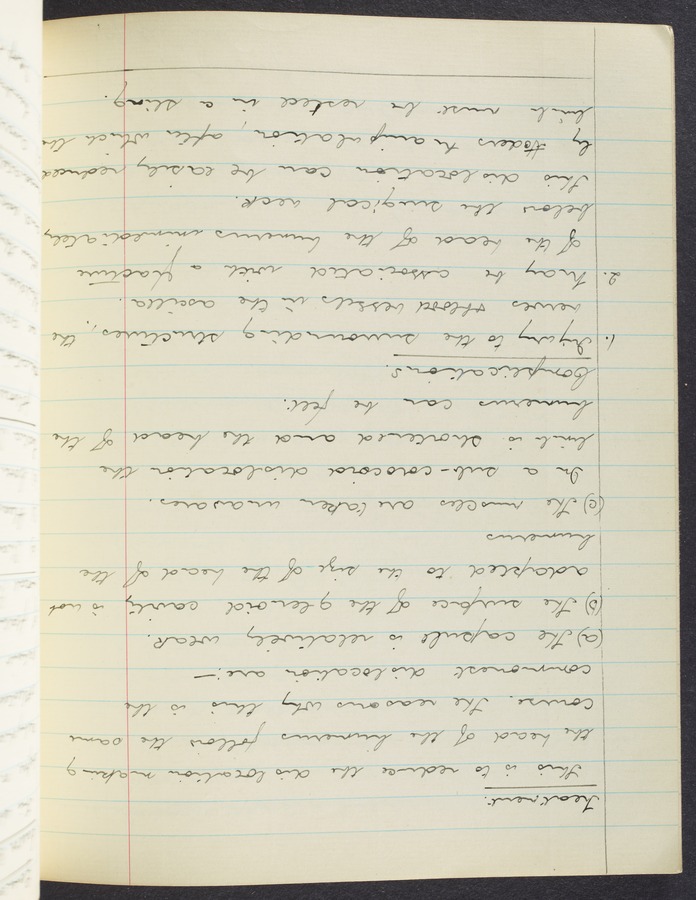 Treatment:
This is to reduce the dislocation making
the head of the humerus follow the same
course. The reasons why this is the
commonest dislocation are:—
(a) The capsule is relatively weak.
(b) The surface of the glenoid cavity is not
adapted to the size of the head of the
humerus
(c) The muscles are taken unawares.
In a sub-coracoid dislocation the
limb is shortened and the head of the
humerus can be felt.
Complications:
1. Injury to the surrounding structures, the
nerves & blood vessels in the axcilla.
2. May be associated with a fracture
of the head of the humerus immediately
below the surgical neck.
This dislocation can be easily reduced
by manipulation, after which the
limb must be rested in a sling.